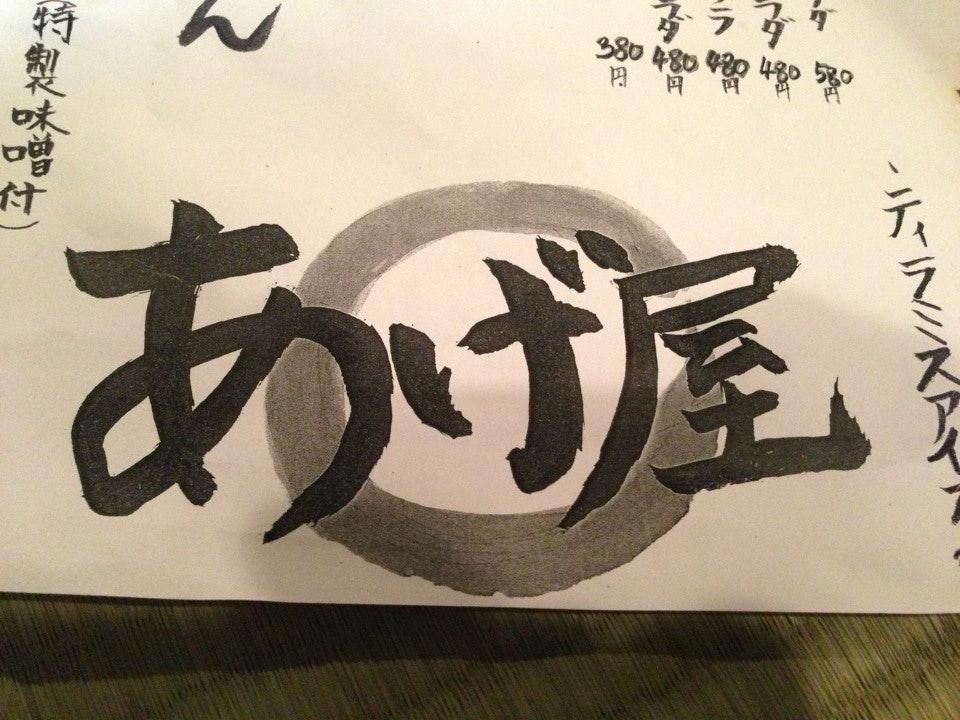 ダ
580円
ラダ
480円
ラ
480円
ラダ
480円
380円
ティラミスアイス
ん
(特製味噌付)
あげ屋